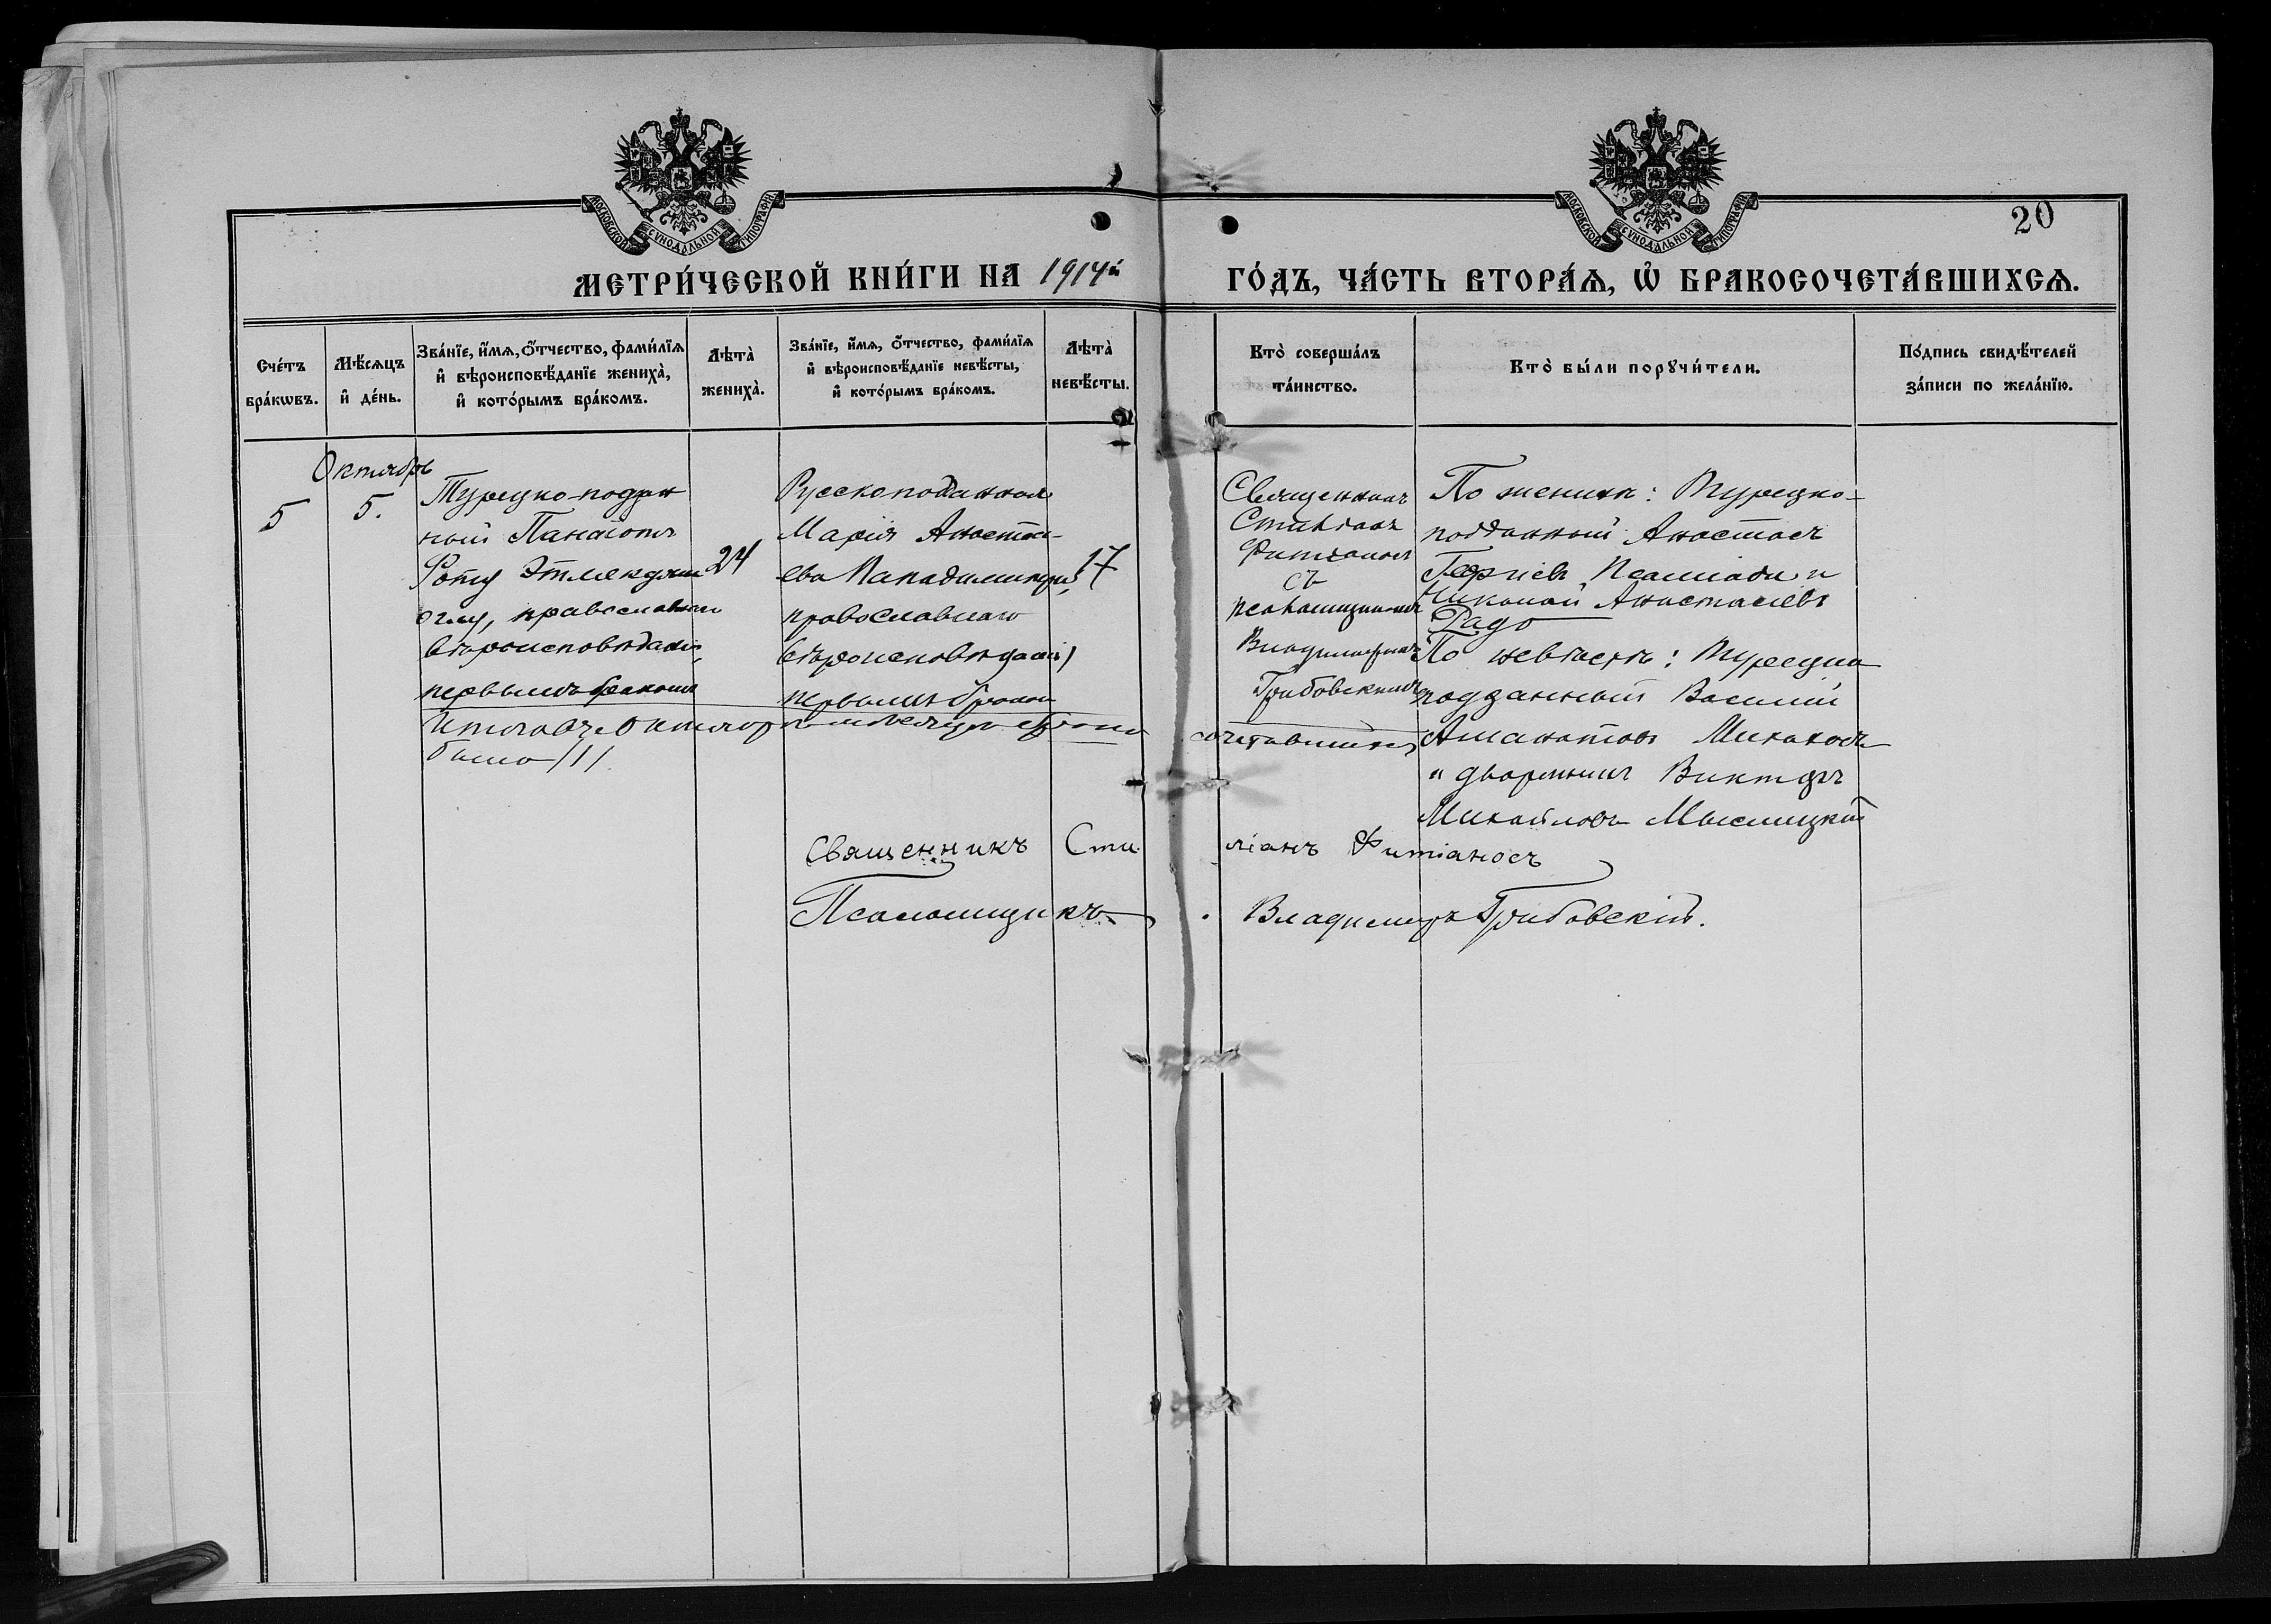 МОСКОВСКОЙ СѴНОДАЛЬНОЙ ТИПОГРАФІИ
МОСКОВСКОЙ СѴНОДАЛЬНОЙ ТИПОГРАФІИ
20
МЕТРИ́ЧЕСКОЙ КНИ́ГИ НА 1914й ГО́ДЪ, ЧА́СТЬ ВТОРА́Ѧ, Ѡ҆ БРАКОСОЧЕТА́ВШИХСѦ.
Сче́тъ
бра́кѡвъ.
Мѣ́сѧцъ
и҆ де́нь.
Зва́нїе, и҆́мѧ, ѻ҆́тчество, фами́лїѧ
и҆ вѣроисповѣ́данїе жениха̀,
и҆ кото́рымъ бра́комъ.
Лѣта̀
жениха̀.
Зва́нїе, и҆́мѧ, ѻ҆́тчество, фами́лїѧ
и҆ вѣроисповѣ́данїе невѣ́сты,
и҆ кото́рымъ бра́комъ.
Лѣта̀
невѣ́сты.
Кто̀ соверша́лъ
та́инство.
Кто̀ бы́ли порꙋчи́тели.
По́дпись свидѣ́телей
за́писи по жела́нїю.
Октябрь
5
5.
Турецко-поддан
ный Панаіотъ
Этмекджи
оглу, православнаго
вѣроисповѣданія,
первымъ бракомъ
24
Русскоподданная
Марія Анаста-
ева
православнаго
вѣроисповѣданія,
первымъ бракомъ
17
Священникъ
Стиліанъ
Фитіаносъ
съ
псаломщикомъ
Владимиромъ
Грибовскимъ
По женихѣ: Турецко-
подданный Анастасъ
Георгіевъ и
Николай Анастасіевъ
Радо
По невѣстѣ: Турецко
подданный Василій
и дворянинъ Викторъ
Михайловъ Мыслицкій
Итого въ Октябрѣ мѣсяцѣ брако сочетавшихся
было /1/.
Священникъ Стиліанъ Фитіаносъ
Псаломщикъ Владимиръ Грибовскій.